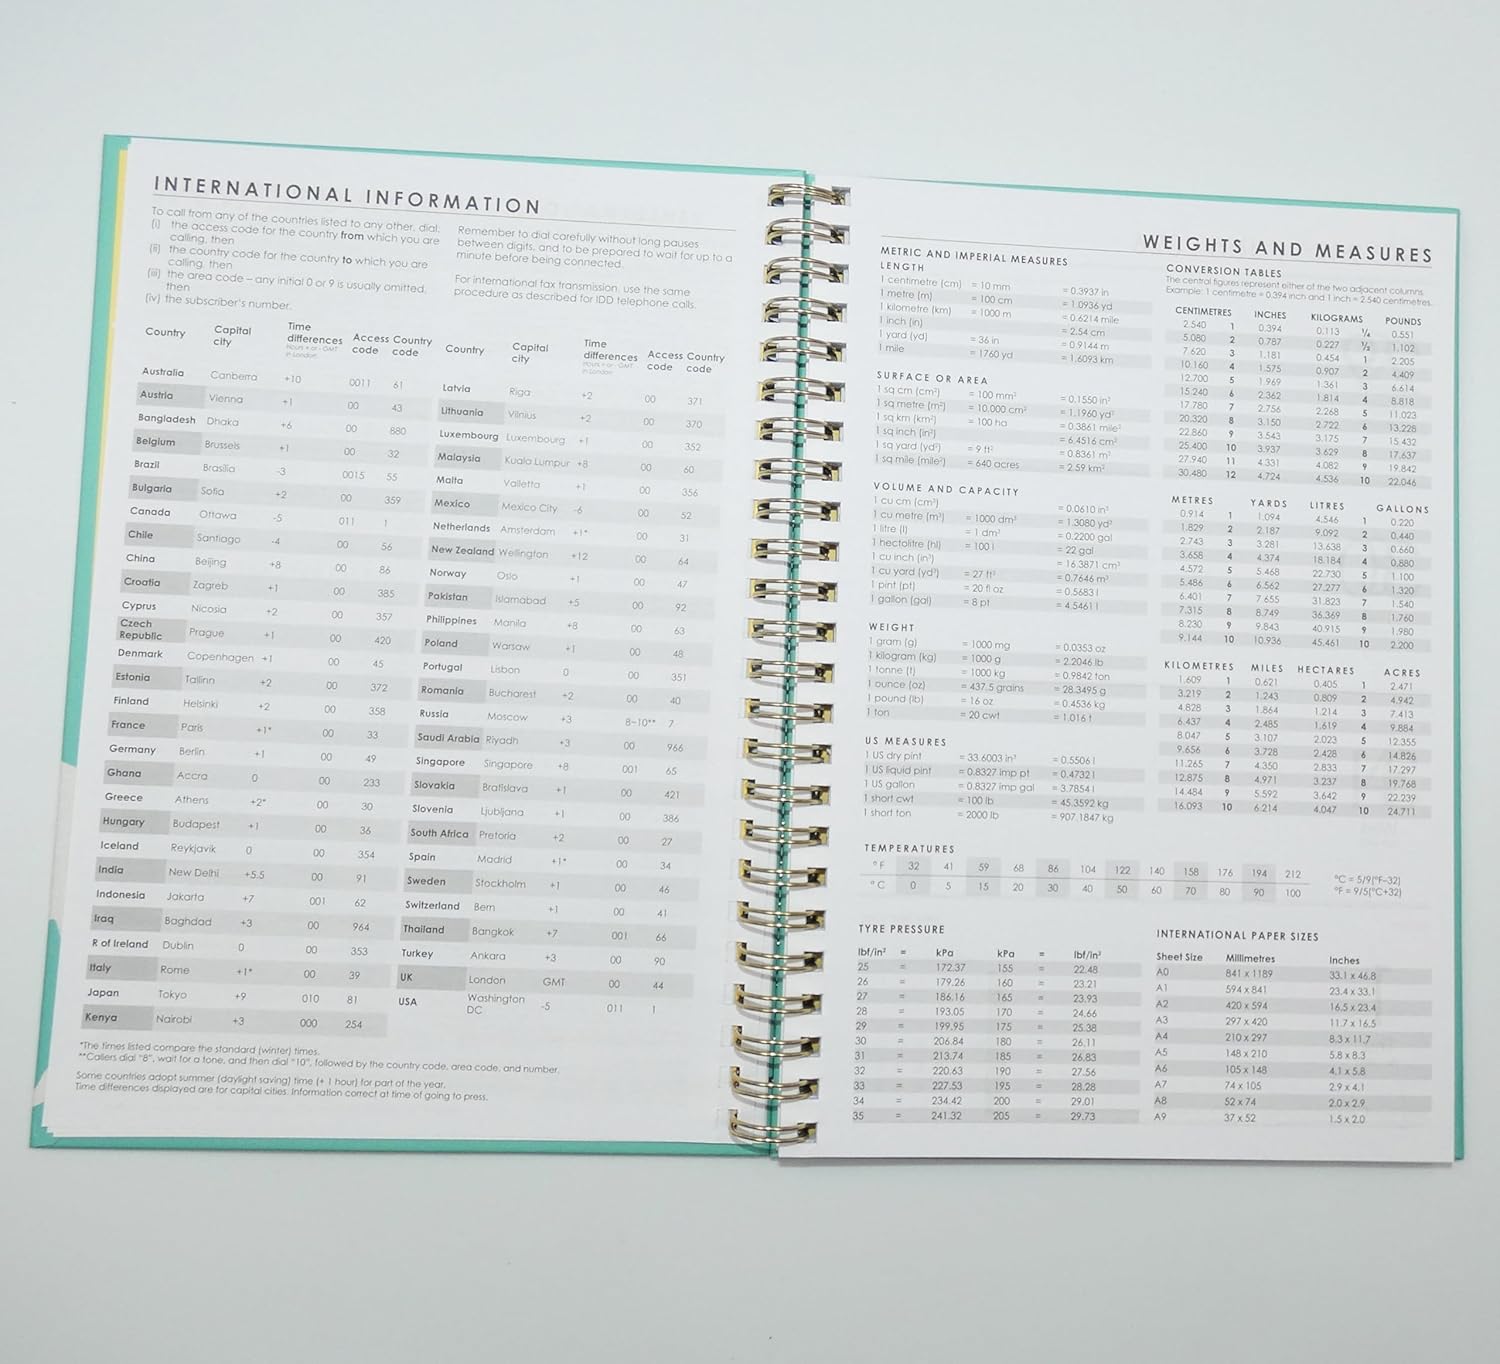 INTERNATIONAL INFORMATION
To call from any of the countries listed to any other, dial:
(i) the access code for the country from which you are
calling, then
(ii) the country code for the country to which you are
calling, then
(iii) the area code – any initial 0 or 9 is usually omitted,
then
(iv) the subscriber's number.
Remember to dial carefully without long pauses
between digits, and to be prepared to wait for up to a
minute before being connected.
For international fax transmission, use the same
procedure as described for IDD telephone calls.
Country Capital city Time differences Hours + or - GMT in London Access code Country code
Australia Canberra +10 0011 61
Austria Vienna +1 00 43
Bangladesh Dhaka +6 00 880
Belgium Brussels +1 00 32
Brazil Brasilia -3 0015 55
Bulgaria Sofia +2 00 359
Canada Ottawa -5 011 1
Chile Santiago -4 00 56
China Beijing +8 00 86
Croatia Zagreb +1 00 385
Cyprus Nicosia +2 00 357
Czech Republic Prague +1 00 420
Denmark Copenhagen +1 00 45
Estonia Tallinn +2 00 372
Finland Helsinki +2 00 358
France Paris +1* 00 33
Germany Berlin +1 00 49
Ghana Accra 0 00 233
Greece Athens +2* 00 30
Hungary Budapest +1 00 36
Iceland Reykjavik 0 00 354
India New Delhi +5.5 00 91
Indonesia Jakarta +7 001 62
Iraq Baghdad +3 00 964
R of Ireland Dublin 0 00 353
Italy Rome +1* 00 39
Japan Tokyo +9 010 81
Kenya Nairobi +3 000 254
Country Capital city Time differences Hours + or - GMT in London Access code Country code
Latvia Riga +2 00 371
Lithuania Vilnius +2 00 370
Luxembourg Luxembourg +1 00 352
Malaysia Kuala Lumpur +8 00 60
Malta Valletta +1 00 356
Mexico Mexico City -6 00 52
Netherlands Amsterdam +1* 00 31
New Zealand Wellington +12 00 64
Norway Oslo +1 00 47
Pakistan Islamabad +5 00 92
Philippines Manila +8 00 63
Poland Warsaw +1 00 48
Portugal Lisbon 0 00 351
Romania Bucharest +2 00 40
Russia Moscow +3 8–10** 7
Saudi Arabia Riyadh +3 00 966
Singapore Singapore +8 001 65
Slovakia Bratislava +1 00 421
Slovenia Ljubljana +1 00 386
South Africa Pretoria +2 00 27
Spain Madrid +1* 00 34
Sweden Stockholm +1 00 46
Switzerland Bern +1 00 41
Thailand Bangkok +7 001 66
Turkey Ankara +3 00 90
UK London GMT 00 44
USA Washington DC -5 011 1
*The times listed compare the standard (winter) times.
**Callers dial "8", wait for a tone, and then dial "10", followed by the country code, area code, and number.
Some countries adopt summer (daylight saving) time (+ 1 hour) for part of the year.
Time differences displayed are for capital cities. Information correct at time of going to press.
WEIGHTS AND MEASURES
METRIC AND IMPERIAL MEASURES
LENGTH
1 centimetre (cm) = 10 mm = 0.3937 in
1 metre (m) = 100 cm = 1.0936 yd
1 kilometre (km) = 1000 m = 0.6214 mile
1 inch (in) = 2.54 cm
1 yard (yd) = 36 in = 0.9144 m
1 mile = 1760 yd = 1.6093 km
SURFACE OR AREA
1 sq cm (cm²) = 100 mm² = 0.1550 in²
1 sq metre (m²) = 10,000 cm² = 1.1960 yd²
1 sq km (km²) = 100 ha = 0.3861 mile²
1 sq inch (in²) = 6.4516 cm²
1 sq yard (yd²) = 9 ft² = 0.8361 m²
1 sq mile (mile²) = 640 acres = 2.59 km²
VOLUME AND CAPACITY
1 cu cm (cm³) = 0.0610 in³
1 cu metre (m³) = 1000 dm³ = 1.3080 yd³
1 litre (l) = 1 dm³ = 0.2200 gal
1 hectolitre (hl) = 100 l = 22 gal
1 cu inch (in³) = 16.3871 cm³
1 cu yard (yd³) = 27 ft³ = 0.7646 m³
1 pint (pt) = 20 fl oz = 0.5683 l
1 gallon (gal) = 8 pt = 4.5461 l
WEIGHT
1 gram (g) = 1000 mg = 0.0353 oz
1 kilogram (kg) = 1000 g = 2.2046 lb
1 tonne (t) = 1000 kg = 0.9842 ton
1 ounce (oz) = 437.5 grains = 28.3495 g
1 pound (lb) = 16 oz = 0.4536 kg
1 ton = 20 cwt = 1.016 t
US MEASURES
1 US dry pint = 33.6003 in³ = 0.5506 l
1 US liquid pint = 0.8327 imp pt = 0.4732 l
1 US gallon = 0.8327 imp gal = 3.7854 l
1 short cwt = 100 lb = 45.3592 kg
1 short ton = 2000 lb = 907.1847 kg
CONVERSION TABLES
The central figures represent either of the two adjacent columns.
Example: 1 centimetre = 0.394 inch and 1 inch = 2.540 centimetres.
CENTIMETRES INCHES KILOGRAMS POUNDS
2.540 1 0.394 0.113 ¼ 0.551
5.080 2 0.787 0.227 ½ 1.102
7.620 3 1.181 0.454 1 2.205
10.160 4 1.575 0.907 2 4.409
12.700 5 1.969 1.361 3 6.614
15.240 6 2.362 1.814 4 8.818
17.780 7 2.756 2.268 5 11.023
20.320 8 3.150 2.722 6 13.228
22.860 9 3.543 3.175 7 15.432
25.400 10 3.937 3.629 8 17.637
27.940 11 4.331 4.082 9 19.842
30.480 12 4.724 4.536 10 22.046
METRES YARDS LITRES GALLONS
0.914 1 1.094 4.546 1 0.220
1.829 2 2.187 9.092 2 0.440
2.743 3 3.281 13.638 3 0.660
3.658 4 4.374 18.184 4 0.880
4.572 5 5.468 22.730 5 1.100
5.486 6 6.562 27.277 6 1.320
6.401 7 7.655 31.823 7 1.540
7.315 8 8.749 36.369 8 1.760
8.230 9 9.843 40.915 9 1.980
9.144 10 10.936 45.461 10 2.200
KILOMETRES MILES HECTARES ACRES
1.609 1 0.621 0.405 1 2.471
3.219 2 1.243 0.809 2 4.942
4.828 3 1.864 1.214 3 7.413
6.437 4 2.485 1.619 4 9.884
8.047 5 3.107 2.023 5 12.355
9.656 6 3.728 2.428 6 14.826
11.265 7 4.350 2.833 7 17.297
12.875 8 4.971 3.237 8 19.768
14.484 9 5.592 3.642 9 22.239
16.093 10 6.214 4.047 10 24.711
TEMPERATURES
°F 32 41 59 68 86 104 122 140 158 176 194 212
°C 0 5 15 20 30 40 50 60 70 80 90 100
°C = 5/9(°F–32)
°F = 9/5(°C+32)
TYRE PRESSURE
lbf/in² = kPa kPa = lbf/in²
25 = 172.37 155 = 22.48
26 = 179.26 160 = 23.21
27 = 186.16 165 = 23.93
28 = 193.05 170 = 24.66
29 = 199.95 175 = 25.38
30 = 206.84 180 = 26.11
31 = 213.74 185 = 26.83
32 = 220.63 190 = 27.56
33 = 227.53 195 = 28.28
34 = 234.42 200 = 29.01
35 = 241.32 205 = 29.73
INTERNATIONAL PAPER SIZES
Sheet Size Millimetres Inches
A0 841 x 1189 33.1 x 46.8
A1 594 x 841 23.4 x 33.1
A2 420 x 594 16.5 x 23.4
A3 297 x 420 11.7 x 16.5
A4 210 x 297 8.3 x 11.7
A5 148 x 210 5.8 x 8.3
A6 105 x 148 4.1 x 5.8
A7 74 x 105 2.9 x 4.1
A8 52 x 74 2.0 x 2.9
A9 37 x 52 1.5 x 2.0